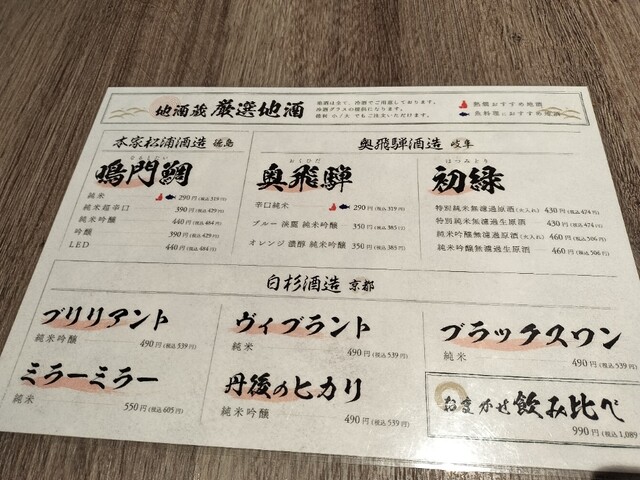 地酒蔵 厳選地酒
地酒は全て、冷酒でご用意しております。
冷酒グラスの提供になります。
徳利 小/大 でもご注文いただけます。
熱燗おすすめ地酒
魚料理におすすめ地酒
本家松浦酒造 徳島
なるとたい
鳴門鯛
純米 290円(税込319円)
純米超辛口 390円(税込429円)
純米吟醸 440円(税込484円)
吟醸 390円(税込429円)
LED 440円(税込484円)
奥飛騨酒造 岐阜
おくひだ
奥飛騨
辛口純米 290円(税込319円)
ブルー 淡麗 純米吟醸 350円(税込385円)
オレンジ 濃醇 純米吟醸 350円(税込385円)
はつみどり
初緑
特別純米無濾過原酒(火入れ) 430円(税込474円)
特別純米無濾過生原酒 430円(税込474円)
純米吟醸無濾過原酒(火入れ) 460円(税込506円)
純米吟醸無濾過生原酒 460円(税込506円)
白杉酒造 京都
ブリリアント
純米吟醸 490円(税込539円)
ヴィブラント
純米 490円(税込539円)
ブラックスワン
純米 490円(税込539円)
ミラーミラー
純米 550円(税込605円)
丹後のヒカリ
純米吟醸 490円(税込539円)
おまかせ飲み比べ
990円(税込1,089